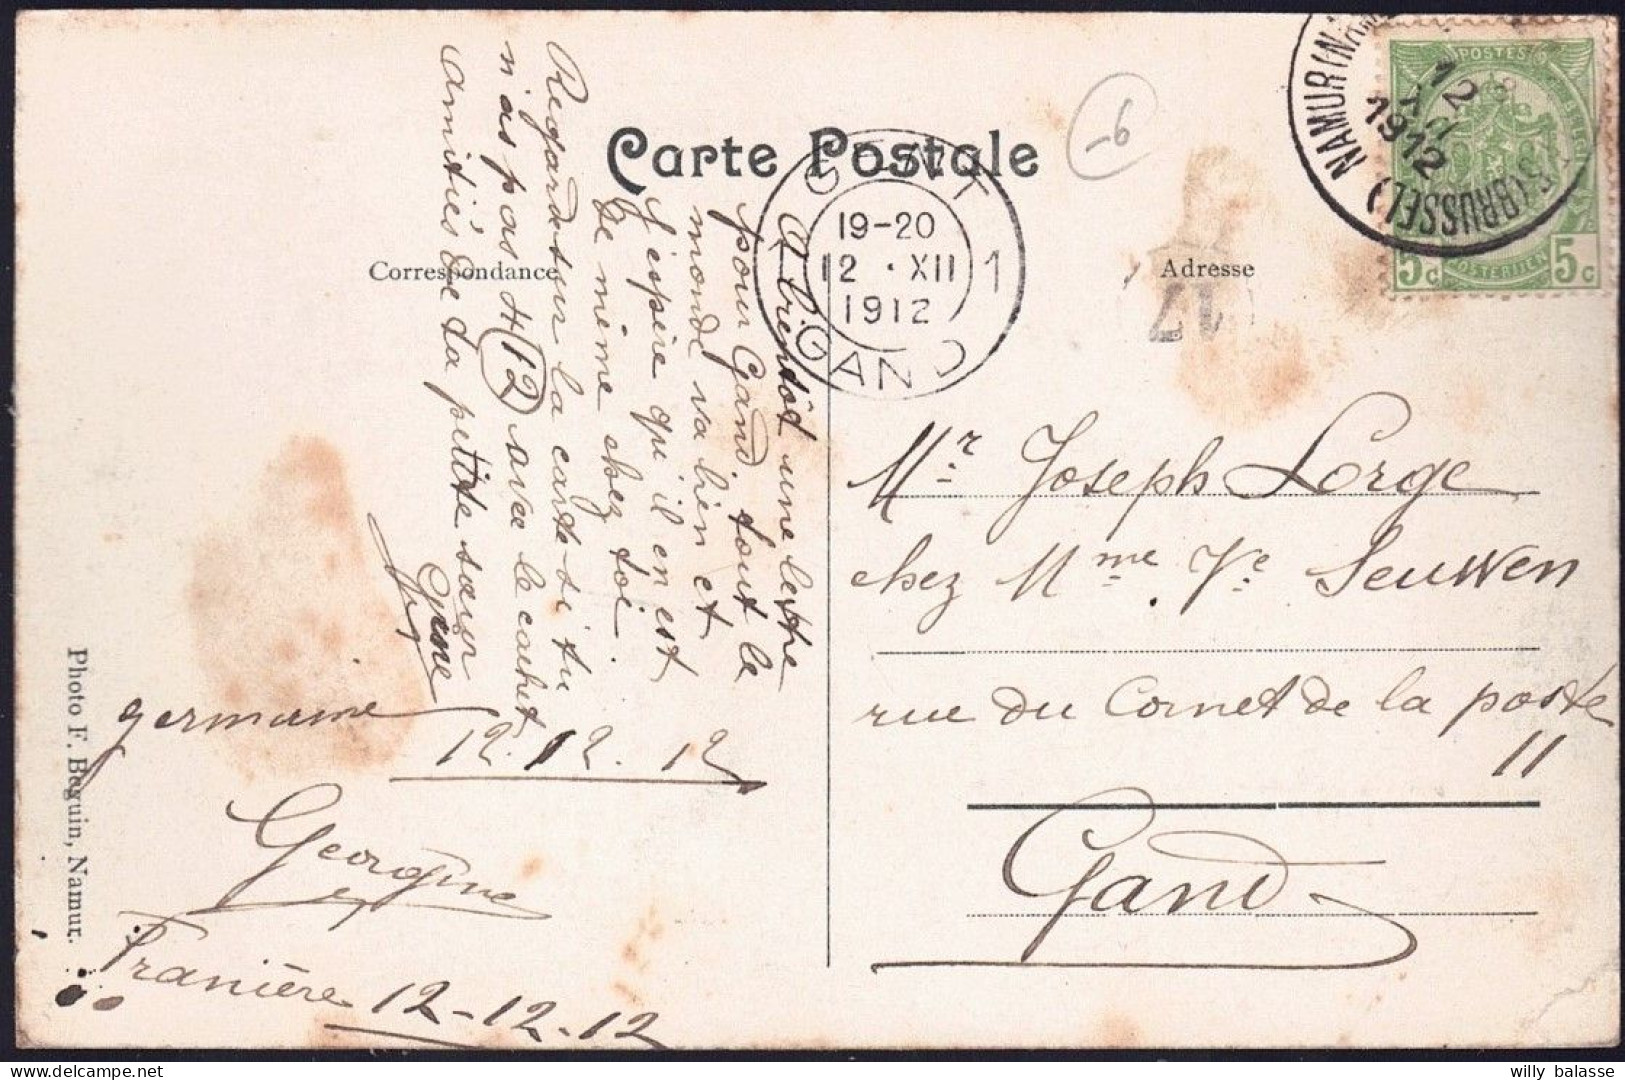 Carte Postale
Correspondance
Adresse
A bientôt une lettre
pour Gand, tout le
monde va bien et
j'espère qu'il en est
de même chez toi.
Regarde sur la carte si tu
n'as pas 4 (12) avec le cachet
amitiés de ta petite sœur
germaine
12.12.12
Georgine
Franière 12-12-12
Mr Joseph Lorge
chez Mme Ve Seuwen
rue du Cornet de la poste
11
Gand
-6
GENT
19-20
12 · XII
1912
1
GAND
NAMUR (NAM
(BRUSSEL)
12
1912
POSTES
POSTERIJEN
5c
5c
17
Photo F. Beguin, Namur.
willy balasse